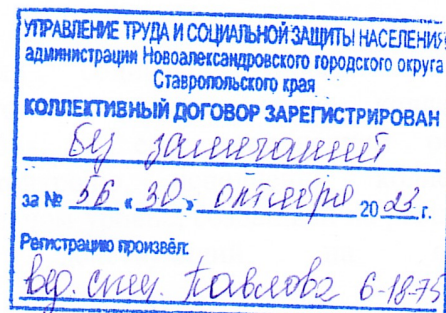 УПРАВЛЕНИЕ ТРУДА И СОЦИАЛЬНОЙ ЗАЩИТЫ НАСЕЛЕНИЯ
администрации Новоалександровского городского округа
Ставропольского края
КОЛЛЕКТИВНЫЙ ДОГОВОР ЗАРЕГИСТРИРОВАН
без замечаний
за № 56 « 30 » октября 20 23 г.
Регистрацию произвёл:
вед. спец. Павлова 6-18-75